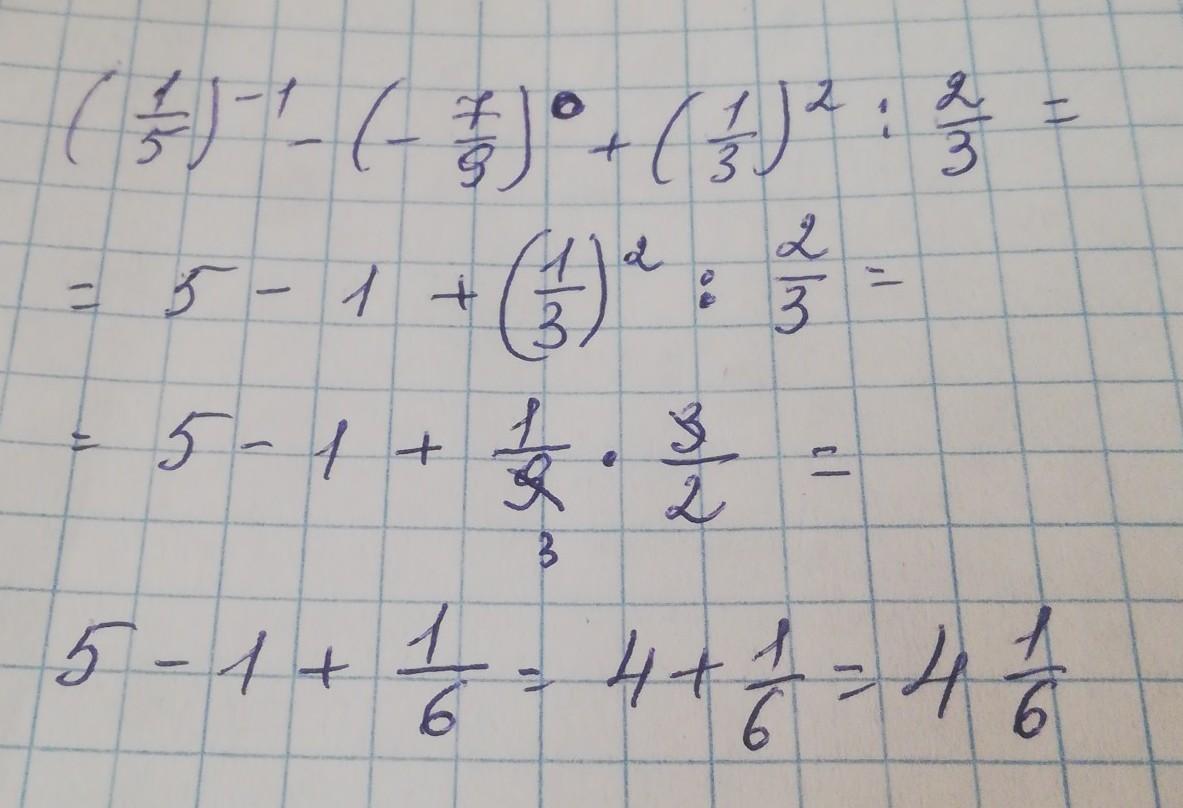 (1/5)^-1 - (-7/9)^0 + (1/3)^2 : 2/3 =
= 5 - 1 + (1/3)^2 : 2/3 =
= 5 - 1 + 1/9 · 3/2 =
3
5 - 1 + 1/6 = 4 + 1/6 = 4 1/6